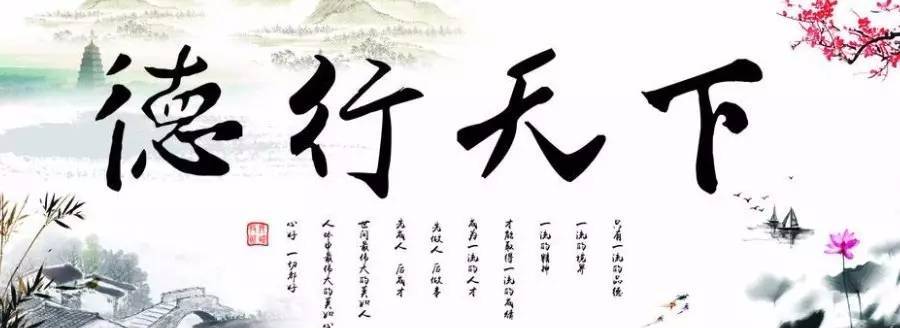 德行天下
只有一流的品德
一流的境界
一流的精神
才能取得一流的成绩
成为一流的人才
先做人 后做事
先成人 后成才
世间最伟大的莫如人
人 中最伟大的莫如心
心好 一切都好